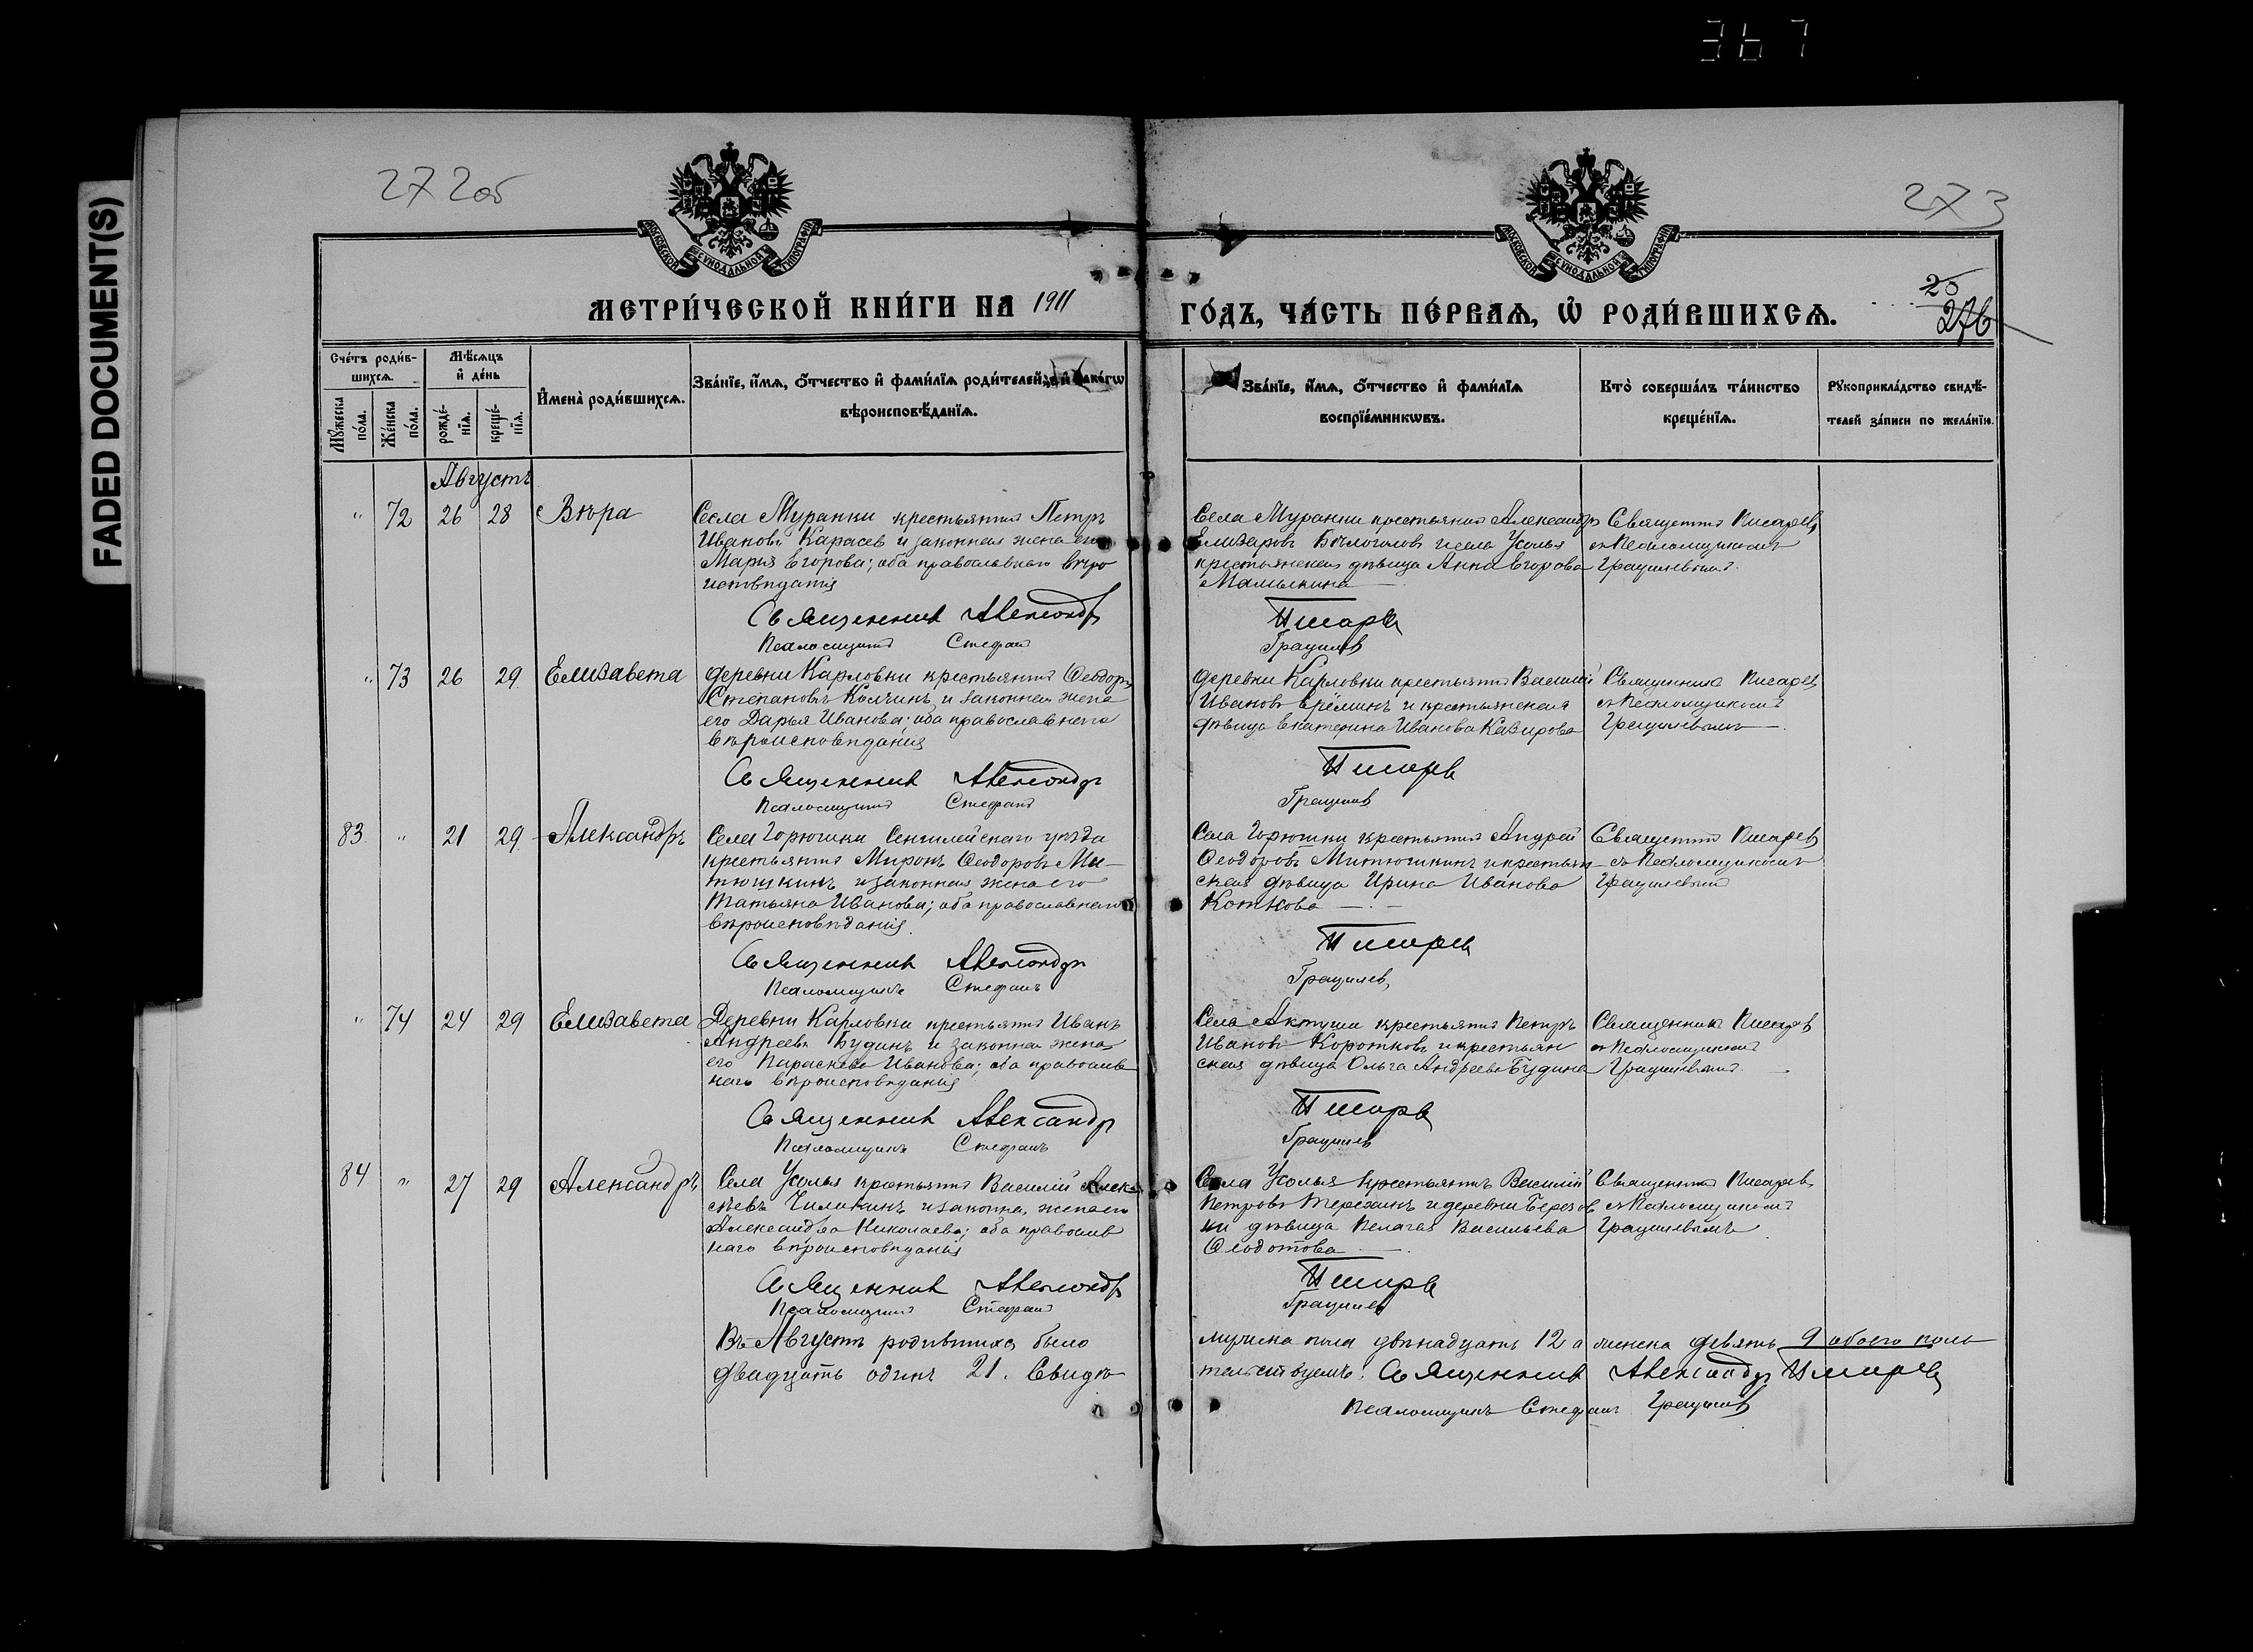 FADED DOCUMENT(S)
367
272об
273
МОСКОВСКОЙ СѴНОДАЛЬНОЙ ТИПОГРАФІИ
МОСКОВСКОЙ СѴНОДАЛЬНОЙ ТИПОГРАФІИ
25
276
МЕТРИ́ЧЕСКОЙ КНИ́ГИ НА 1911 ГО́ДЪ, ЧА́СТЬ ПЕ́РВАѦ, Ѡ҆ РОДИ́ВШИХСѦ.
Сче́тъ роди́в-
шихсѧ.
Мꙋ́жеска по́ла.
Же́нска по́ла.
Мѣ́сѧцъ
и҆ де́нь
рожде́-
нїѧ.
креще́-
нїѧ.
И҆мена̀ роди́вшихсѧ.
Зва́нїе, и҆́мѧ, ѻ҆́тчество и҆ фами́лїѧ роди́телей, и҆ како́гѡ
вѣроисповѣ́данїѧ.
Зва́нїе, и҆́мѧ, ѻ҆́тчество и҆ фами́лїѧ
воспрїе́мникѡвъ.
Кто̀ соверша́лъ та́инство
креще́нїѧ.
Рꙋкоприкла́дство свидѣ́-
телей за́писи по жела́нїю.
Августъ
" 72 26 28 Вѣра
Села Муранки крестьянинъ Петръ
Ивановъ Карасев и законная жена его
Марья Егорова; оба православнаго вѣро
исповѣданія
Священник Александр
Псаломщикъ Стефанъ
Села Муранки крестьянинъ Александръ
Елизаровъ Бѣлоголовъ и села Усолья
крестьянская дѣвица Анна Егорова
Мамыкина
Писарев
Грацилев
Священникъ Писаревъ
съ Псаломщикомъ
Грацилевымъ.
" 73 26 29 Елизавета
деревни Карловки крестьянинъ Ѳеодоръ
Степановъ Калчинъ и законная жена
его Дарья Иванова; оба православнаго
вѣроисповѣданія
Священник Александр
Псаломщикъ Стефанъ
деревни Карловки крестьянинъ Василій
Ивановъ Ерёминъ и крестьянская
дѣвица Екатерина Иванова Казирова
Писарев
Грацилев
Священникъ Писаревъ
съ Псаломщикомъ
Грацилевымъ
83 " 21 29 Александръ
Села Горюшки Сенгилейскаго уѣзда
крестьянинъ Миронъ Ѳеодоровъ Ми-
тюшкинъ и законная жена его
Татьяна Иванова; оба православнаго
вѣроисповѣданія.
Священник Александр
Псаломщикъ Стефанъ
Села Горюшки крестьянинъ Андрей
Ѳеодоровъ Митюшкинъ и крестьян-
ская дѣвица Ирина Иванова
Коткова
Писарев
Грацилев
Священникъ Писаревъ
съ Псаломщикомъ
Грацилевымъ
" 74 24 29 Елизавета
Деревни Карловки крестьянинъ Иванъ
Андреевъ Будинъ и законная жена
его Параскева Иванова; оба православ
наго вѣроисповѣданія
Священник Александр
Псаломщикъ Стефанъ
Села Актуши крестьянинъ Петръ
Ивановъ Коротковъ и крестьян
ская дѣвица Ольга Андреева Будина
Писарев
Грацилев
Священникъ Писарев
съ Псаломщикомъ
Грацилевымъ.
84 " 27 29 Александръ
Села Усолья крестьянинъ Василій Алек
сѣевъ Чиликинъ и законная жена его
Александра Николаева; оба православ
наго вѣроисповѣданія
Священник Александр
Псаломщикъ Стефанъ
Села Усолья крестьянинъ Василій
Петровъ Терехинъ и деревни Березов
ки дѣвица Пелагея Васильева
Ѳеодотова
Писарев
Грацилев
Священникъ Писаревъ
съ Псаломщикомъ
Грацилевымъ
Въ Августѣ родившихся было мужеска пола двѣнадцать 12 а женска девять 9 обоего пола
двадцать одинъ 21. Свидѣтельствуемъ: Священник Александр Писарев
Псаломщикъ Стефанъ Грацилев